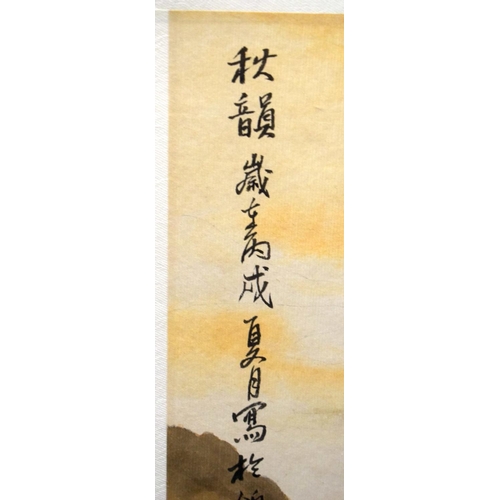 秋韻歲在丙戌夏月寫於